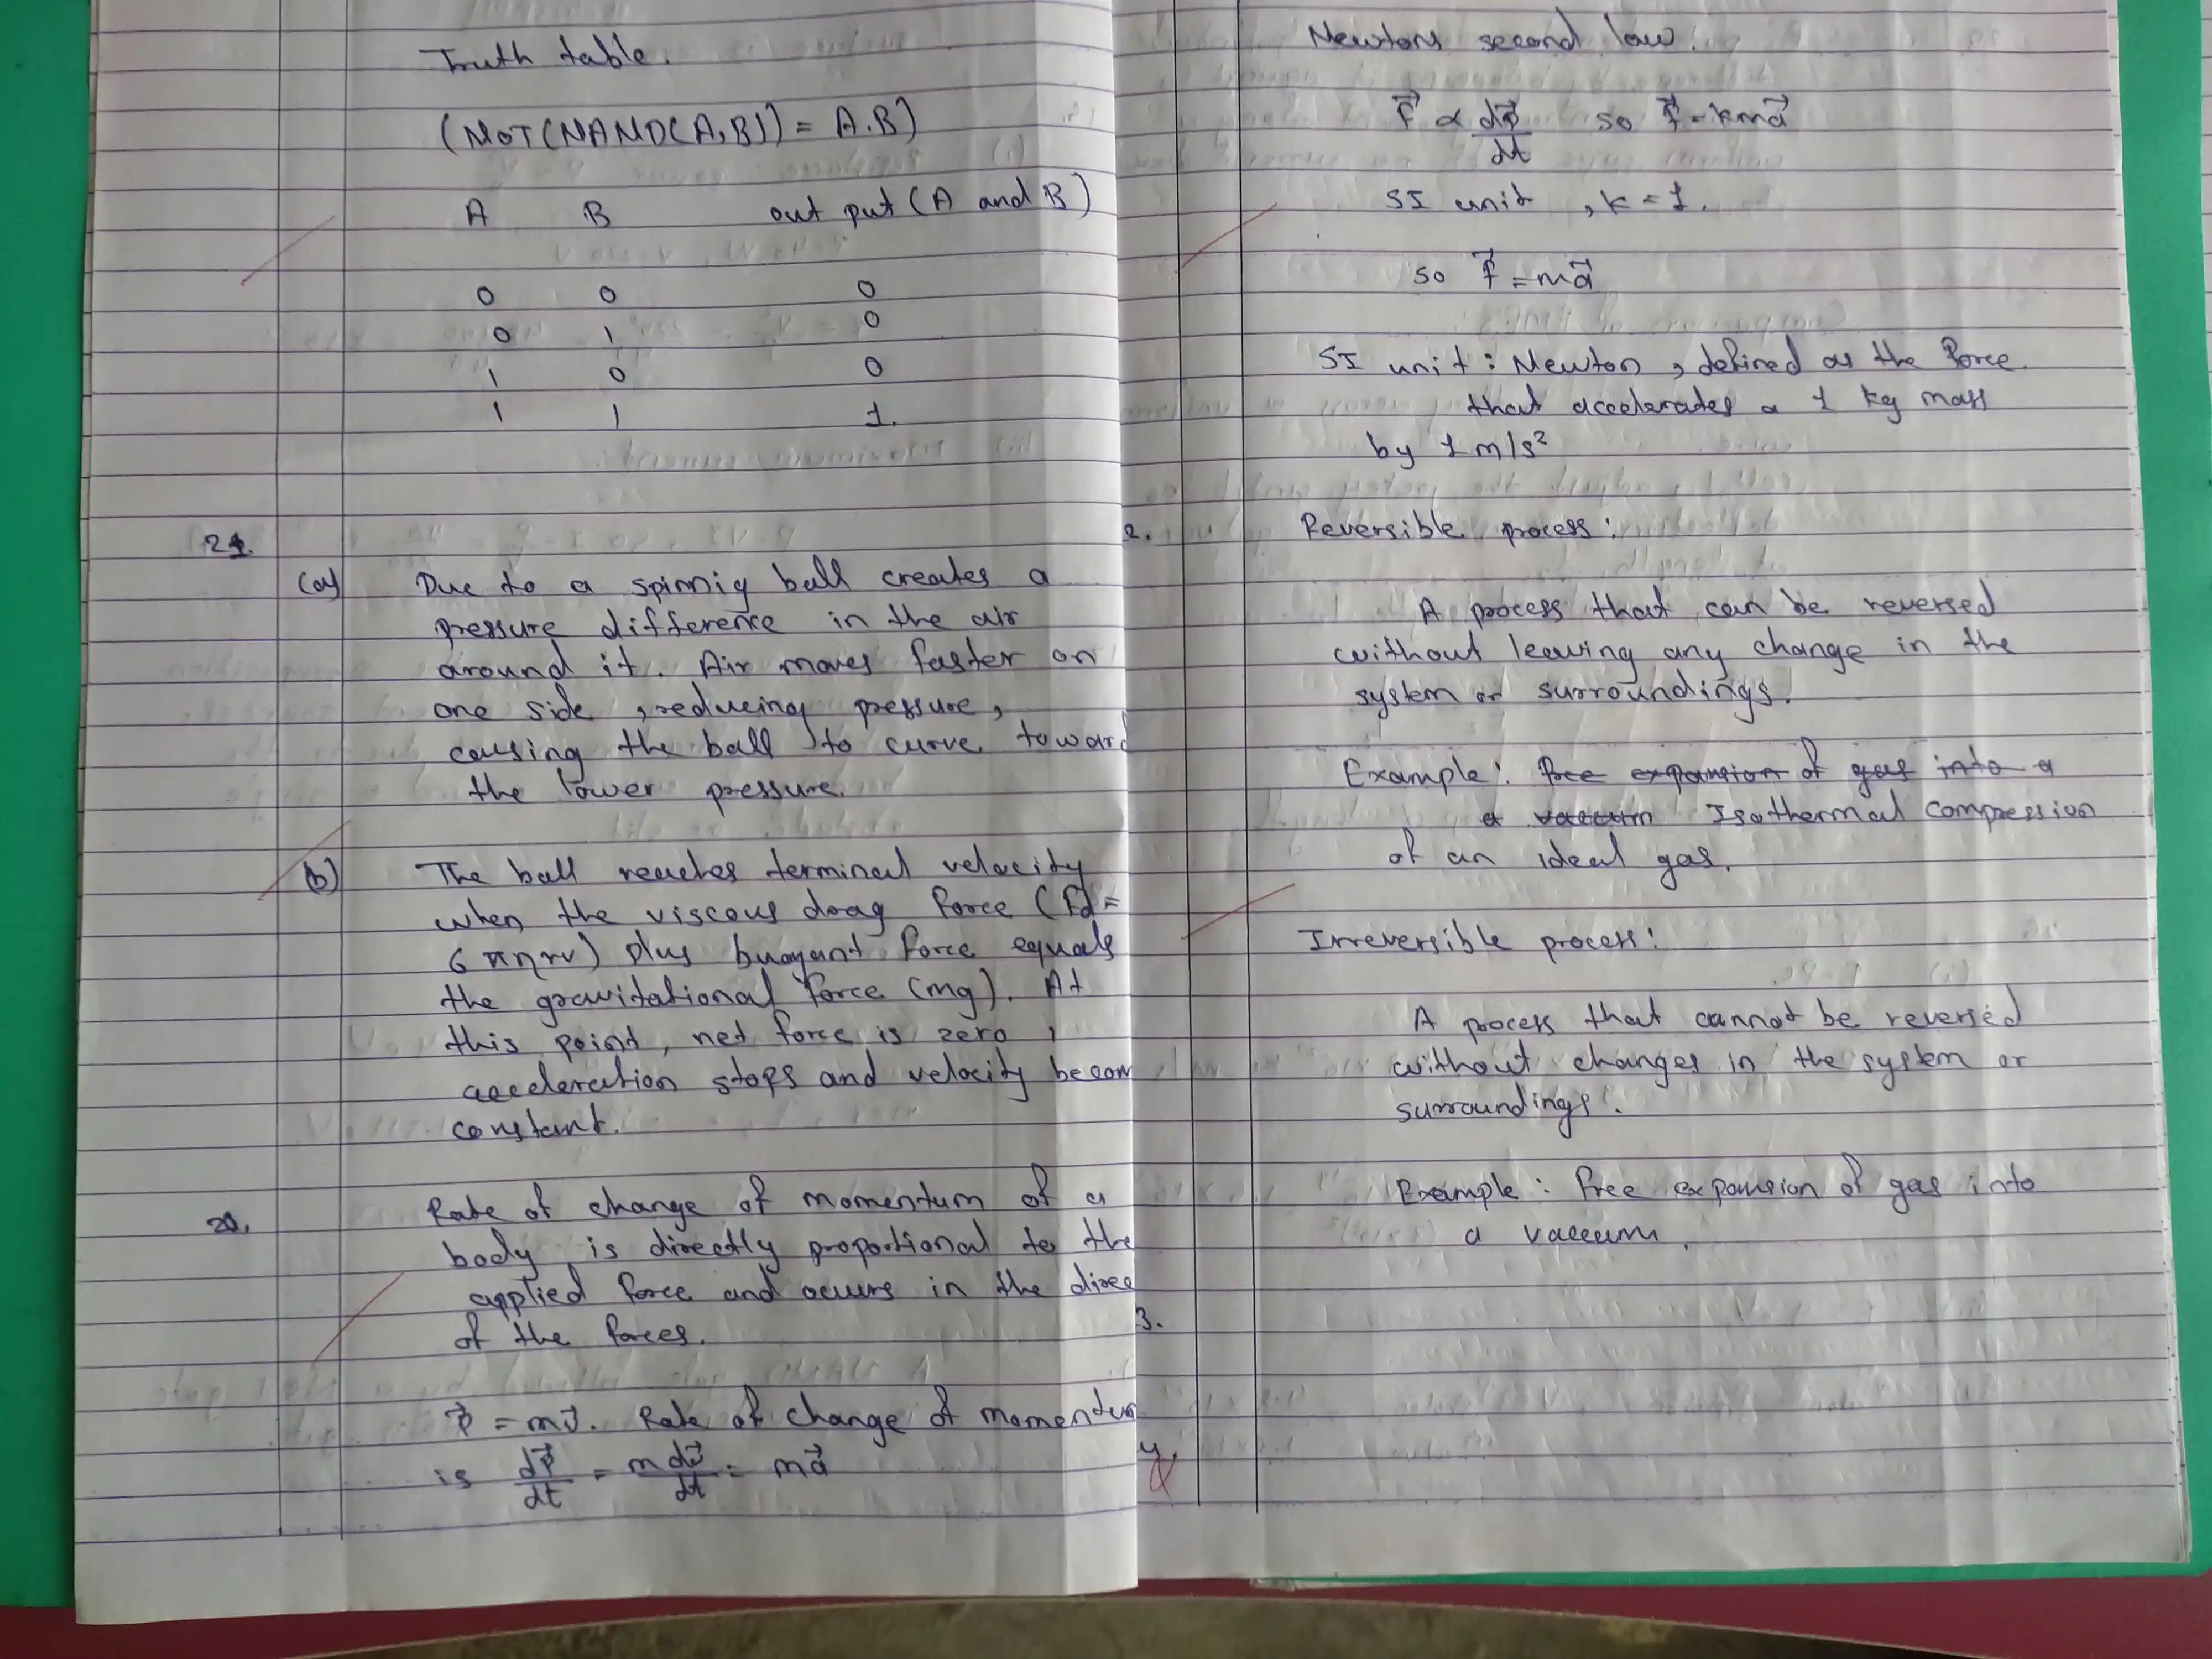 Truth table.
(NOT(NAND(A,B)) = A.B)
A B out put (A and B)
0 0 0
0 1 0
1 0 0
1 1 1.
21.
(a) Due to a spinnig ball creates a
pressure difference in the air
around it. Air moves faster on
one side, reducing pressure,
causing the ball to curve toward
the lower pressure.
(b) The ball reaches terminal velocity
when the viscous drag force (Fd =
6πηrv) plus buoyant force equals
the gravitational force (mg). At
this point, net force is zero,
acceleration stops and velocity becom
constant.
Rate of change of momentum of a
body is directly proportional to the
applied force and occurs in the direc
of the forces.
p⃗ = mv⃗. Rate of change of momentum
is dp⃗/dt = m dv⃗/dt = ma⃗
Newtons second law.
F⃗ ∝ dp⃗/dt so F⃗ = kma⃗
SI unit, k = 1.
so F⃗ = ma⃗
SI unit: Newton, defined as the force
that accelerates a 1 kg mass
by 1 m/s²
2. Reversible process:
A process that can be reversed
without leaving any change in the
system or surroundings.
Example: free expansion of gas into a
a vaccum Isothermal compression
of an ideal gas.
Irreversible process:
A process that cannot be reversed
without changes in the system or
surroundings.
Example: free expansion of gas into
a vaccum.
3.
4.